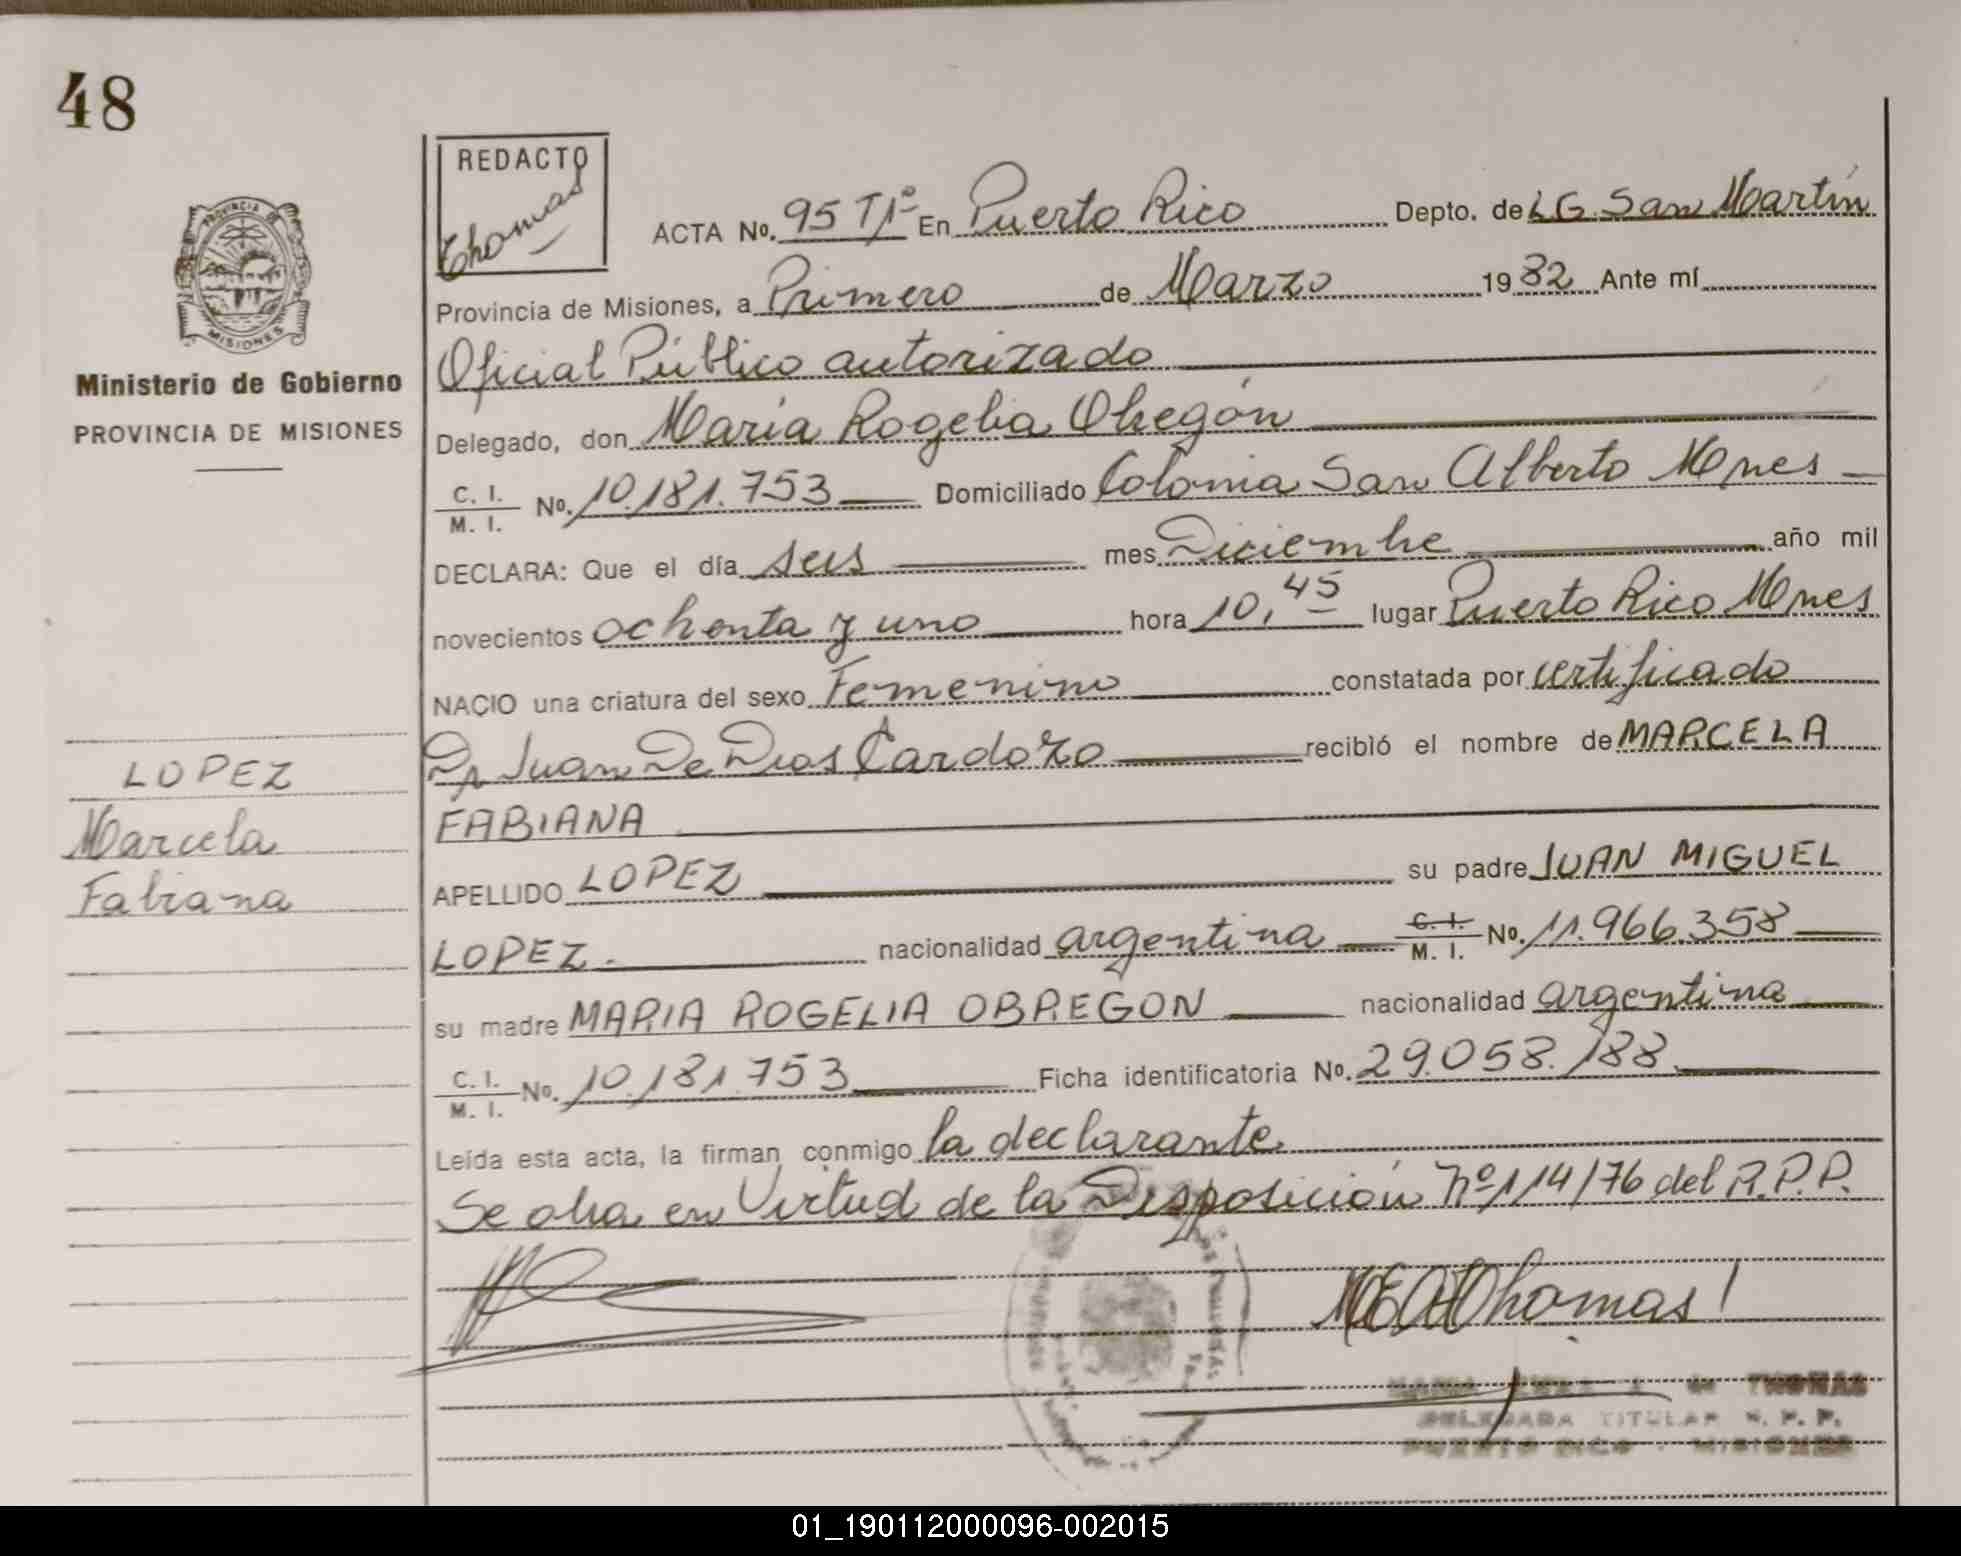 48
REDACTO
Thomas
ACTA No. 95 T1º En Puerto Rico Depto. de L.G. San Martín
Provincia de Misiones, a Primero de Marzo 1982 Ante mí
Oficial Público autorizado
Delegado, don María Rogelia Obregón
C. I. / M. I. No. 10.181.753 Domiciliado Colonia San Alberto Mnes
DECLARA: Que el día seis mes Diciembre año mil
novecientos ochenta y uno hora 10,45 lugar Puerto Rico Mnes
NACIO una criatura del sexo Femenino constatada por certificado
Dr Juan De Dios Cardozo recibió el nombre de MARCELA
FABIANA
APELLIDO LOPEZ su padre JUAN MIGUEL
LOPEZ. nacionalidad argentina C. I. / M. I. No. 11.966.358
su madre MARIA ROGELIA OBREGON nacionalidad argentina
C. I. / M. I. No. 10.181.753 Ficha identificatoria No. 29.058.188
Leída esta acta, la firman conmigo la declarante
Se obra en Virtud de la Disposición Nº 114/76 del R.P.P.
Thomas
MARIA THOMAS
DELEGADA TITULAR R. P. P.
PUERTO RICO - MISIONES
PROVINCIA DE
MISIONES
Ministerio de Gobierno
PROVINCIA DE MISIONES
LOPEZ
Marcela
Fabiana
01_190112000096-002015